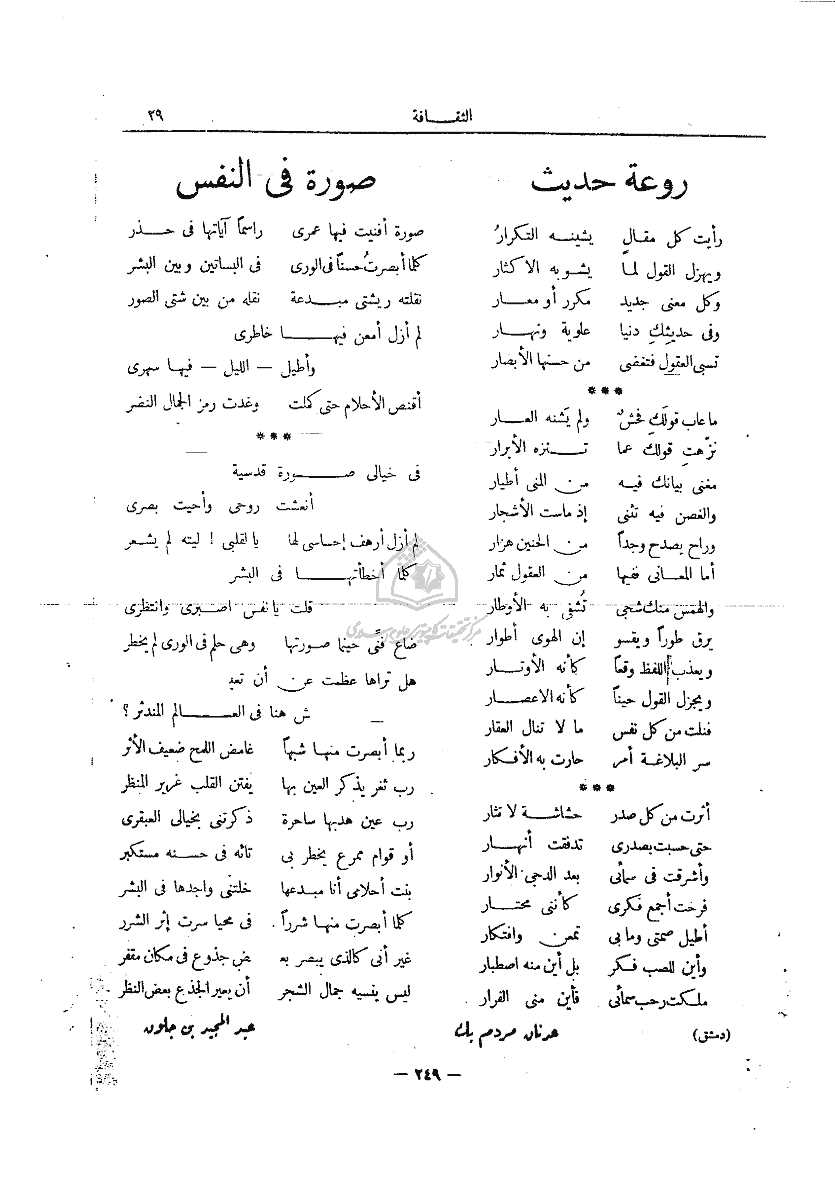 الثقافة
٢٩
روعة حديث
رأيت كل مقال يشينه التكرارُ
ويهزل القول لما يشوبه الاكثار
وكل معنى جديد مكرر أو معار
وفى حديثكِ دنيا علوية ونهار
تسبى العقول فتغضى من حسنها الأبصار
***
ما عاب قولكِ فحشٌ ولم يَشنه العار
نزّهتِ قولك عما تتنزه الأبرار
مغنى بيانك فيه من المنى أطيار
والغصن فيه تثنى إذ ماست الأشجار
وراح يصدح وجداً من الحنين هزار
أما المعانى ففيها من العقول ثمار
والهمس منك شجى تُشفى به الأوطار
يرق طوراً ويقسو إن الهوى أطوار
ويعذب اللفظ وقعاً كأنه الأوتار
ويجزل القول حيناً كأنه الاعصار
فنلت من كل نفس ما لا تنال العقار
سر البلاغة أمر حارت به الأفكار
***
أثرت من كل صدر حشاشة لا تثار
حتى حسبت بصدرى تدفقت أنهار
وأشرقت فى سمائى بعد الدجى الأنوار
فرحت أجمع فكرى كأننى محتار
أطيل صمتى وما بى تمعن وافتكار
وأين للصب فكر بل أين منه اصطبار
ملكت رحب سمائى فأين منى الفرار
(دمشق) عدنان مردم بك
صورة فى النفس
صورة أفنيت فيها عمرى راسماً آياتها فى حذر
كلما أبصرتُ حسناً فى الورى فى البساتين وبين البشر
نقلته ريشتى مبدعة نقله من بين شتى الصور
لم أزل أمعن فيها خاطرى
وأطيل – الليل – فيها سهرى
أقنص الأحلام حتى كملت وغدت رمز الجمال النضر
***
فى خيالى صورة قدسية
أنعشت روحى وأحيت بصرى
لم أزل أرهف إحساسى لها يا لقلبى ! ليته لم يشعر
كلما أخطأتها فى البشر
قلت يا نفس اصبرى وانتظرى
ضاع فنّى حينما صورتها وهى حلم فى الورى لم يخطر
هل تراها عظمت عن أن تعيـ
ـش هنا فى العالم المندثر ؟
ربما أبصرت منها شبهاً غامض اللمح ضعيف الأثر
رب ثغر يذكر العين بها يفتن القلب غرير المنظر
رب عين هدبها ساحرة ذكرتنى بخيالى العبقرى
أو قوام ممرع يخطر بى تائه فى حسنه مستكبر
بنت أحلامى أنا مبدعها خلتنى واجدها فى البشر
كلما أبصرت منها شرراً فى محيا سرت إثر الشرر
غير أنى كالذى يبصر بعـ ـض جذوع فى مكان مقفر
ليس ينسيه جمال الشجر أن يعير الجذع بعض النظر
عبد المجيد بن جلون
— ٢٤٩ —